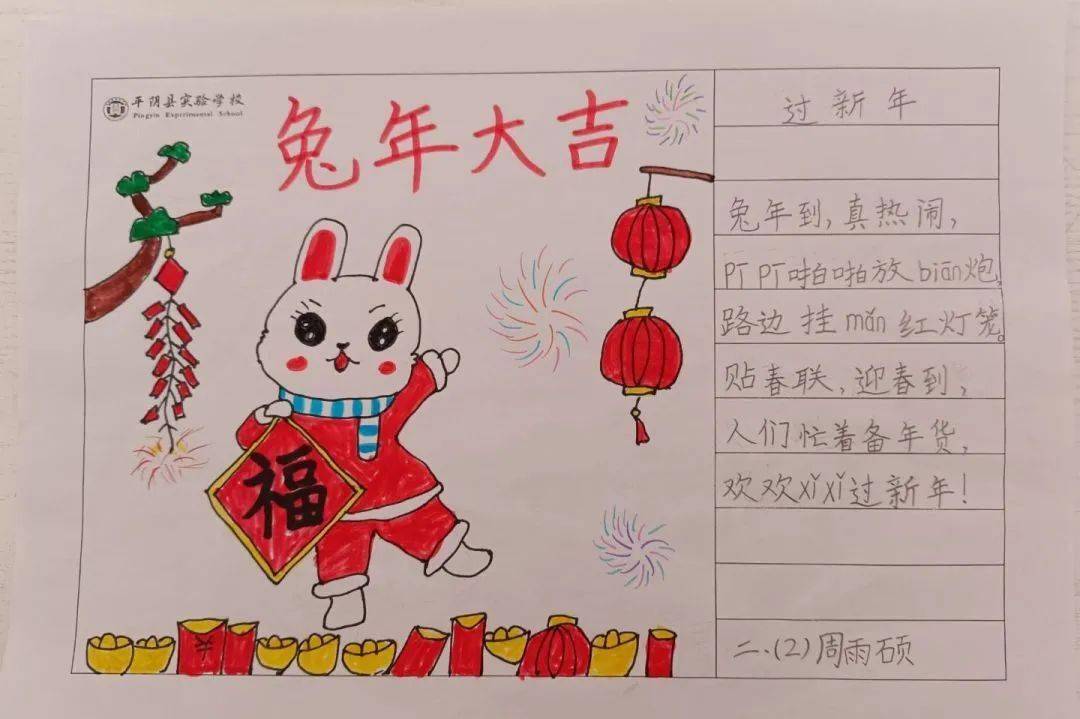 平阴县实验学校
Pingyin Experimental School
兔年大吉
福
过新年
兔年到,真热闹,
PT PT啪啪放biān炮,
路边挂mǎn红灯笼。
贴春联,迎春到,
人们忙着备年货,
欢欢xǐxǐ过新年!
二.(2)周雨硕